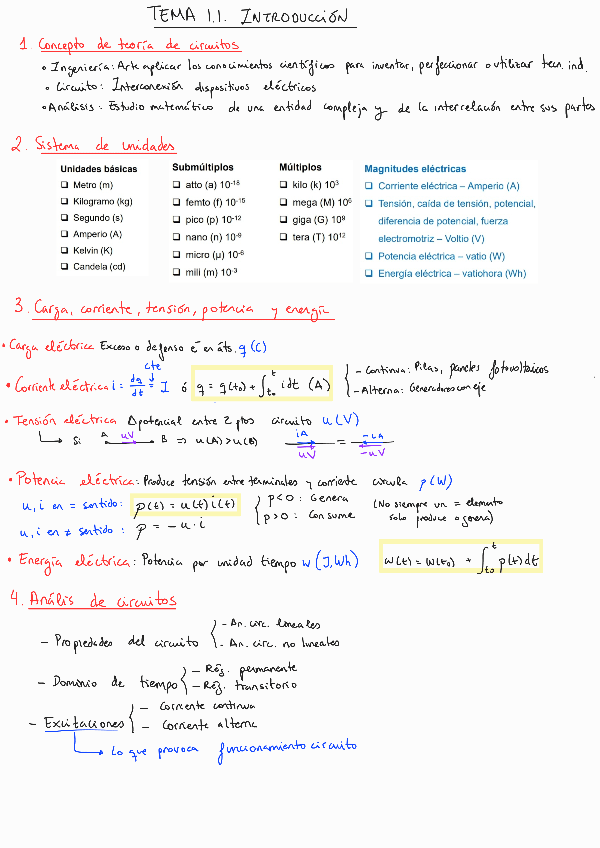 TEMA 1.1. INTRODUCCIÓN
1 Concepto de teoría de circuitos
• Ingeniería: Arte aplicar los conocimientos científicos para inventar, perfeccionar o utilizar tecn. ind.
• Circuito: Interconexión dispositivos eléctricos
• Análisis: Estudio matemático de una entidad compleja y de la interrelación entre sus partes
2. Sistema de unidades
Unidades básicas
❑ Metro (m)
❑ Kilogramo (kg)
❑ Segundo (s)
❑ Amperio (A)
❑ Kelvin (K)
❑ Candela (cd)
Submúltiplos
❑ atto (a) 10⁻¹⁸
❑ femto (f) 10⁻¹⁵
❑ pico (p) 10⁻¹²
❑ nano (n) 10⁻⁹
❑ micro (µ) 10⁻⁶
❑ mili (m) 10⁻³
Múltiplos
❑ kilo (k) 10³
❑ mega (M) 10⁶
❑ giga (G) 10⁹
❑ tera (T) 10¹²
Magnitudes eléctricas
❑ Corriente eléctrica – Amperio (A)
❑ Tensión, caída de tensión, potencial,
diferencia de potencial, fuerza
electromotriz – Voltio (V)
❑ Potencia eléctrica – vatio (W)
❑ Energía eléctrica – vatiohora (Wh)
3. Carga, corriente, tensión, potencia y energía
• Carga eléctrica Exceso o defenso é en áts. q (C)
cte
• Corriente eléctrica i = dq/dt = I ó q = q(t₀) + ∫ₜ₀ᵗ i dt (A)
– Continua: Pilas, paneles fotovoltaicos
– Alterna: Generadores con eje
• Tensión eléctrica Δpotencial entre 2 ptos circuito u(V)
Si A uV B ⇒ u(A) > u(B) iA uV = –iA –uV
• Potencia eléctrica: Produce tensión entre terminales y corriente circula p(W)
u, i en = sentido: p(t) = u(t) i(t)
u, i en ≠ sentido: p = – u · i
p<0: Genera
p>0: Consume
(No siempre un = elemento
solo produce o genera)
• Energía eléctrica: Potencia por unidad tiempo w (J, Wh) w(t) = w(t₀) + ∫ₜ₀ᵗ p(t) dt
4. Anális de circuitos
– Propiedades del circuito
– An. circ. lineales
– An. circ. no lineales
– Dominio de tiempo
– Rég. permanente
– Rég. transitorio
– Excitaciones
– Corriente continua
– Corriente alterna
Lo que provoca funcionamiento circuito